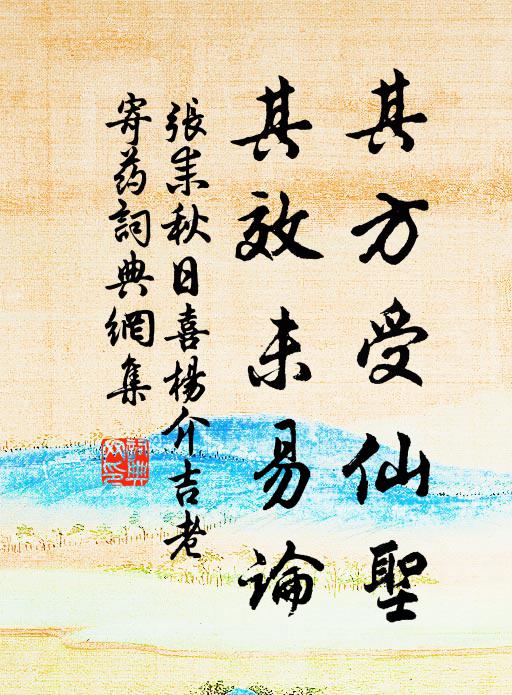 其方受仙聖
其效未易論
張耒秋日喜楊介吉老
寄药詞典網集
詞典